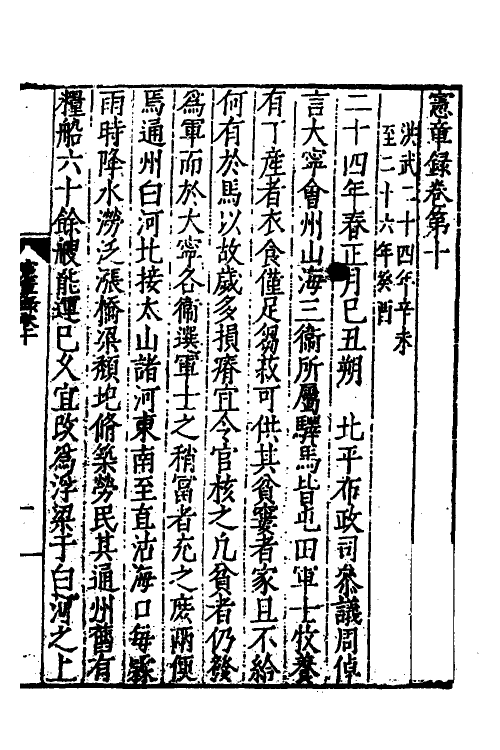 憲章録卷第十
洪武二十四年辛未
至二十六年癸酉
二十四年春正月己丑朔　北平布政司叅議周倬
言大寧會州山海三衛所屬驛馬皆屯田軍士牧養
有丁產者衣食僅足芻菽可供其貧窶者家且不給
何有於馬以故歲多損瘠宜令官核之凡貧者仍發
爲軍而於大寧各衞選軍士之稍富者充之庶兩便
焉通州白河北接太山諸河東南至直沽海口每霖
雨時降水澇泛漲橋梁頽圯脩築勞民其通州舊有
糧船六十餘艘能運已久宜改爲浮梁于白河之上